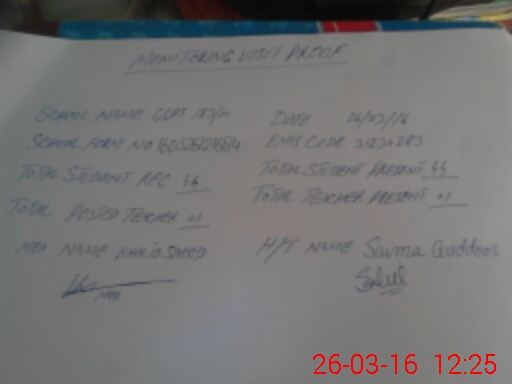 MONITORING VISIT PROOF
SCHOOL NAME GGPS 153/M DATE 26/03/16
SCHOOL FORM NO EMIS CODE 31230283
TOTAL STUDENT REG TOTAL STUDENT PRESENT
TOTAL POSTED TEACHER 01 TOTAL TEACHER PRESENT 01
MEA NAME KHALID SAEED H/T NAME Saima Quddoos
MEA
26-03-16 12:25